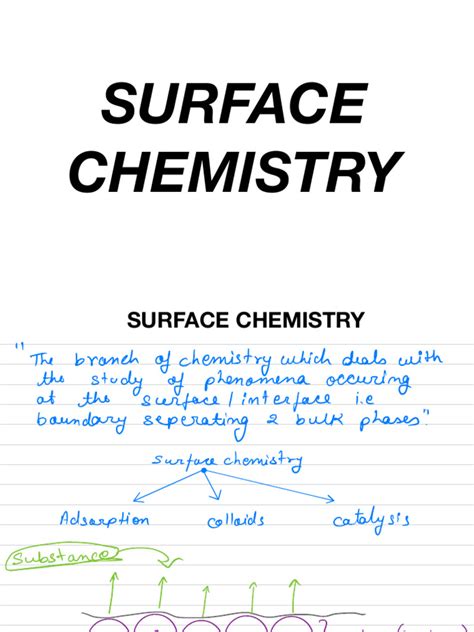 SURFACE
CHEMISTRY
SURFACE CHEMISTRY
"The branch of chemistry which deals with
the study of phenomena occuring
at the surface/interface i.e
boundary seperating 2 bulk phases".
Surface chemistry
Adsorption colloids catalysis
Substance